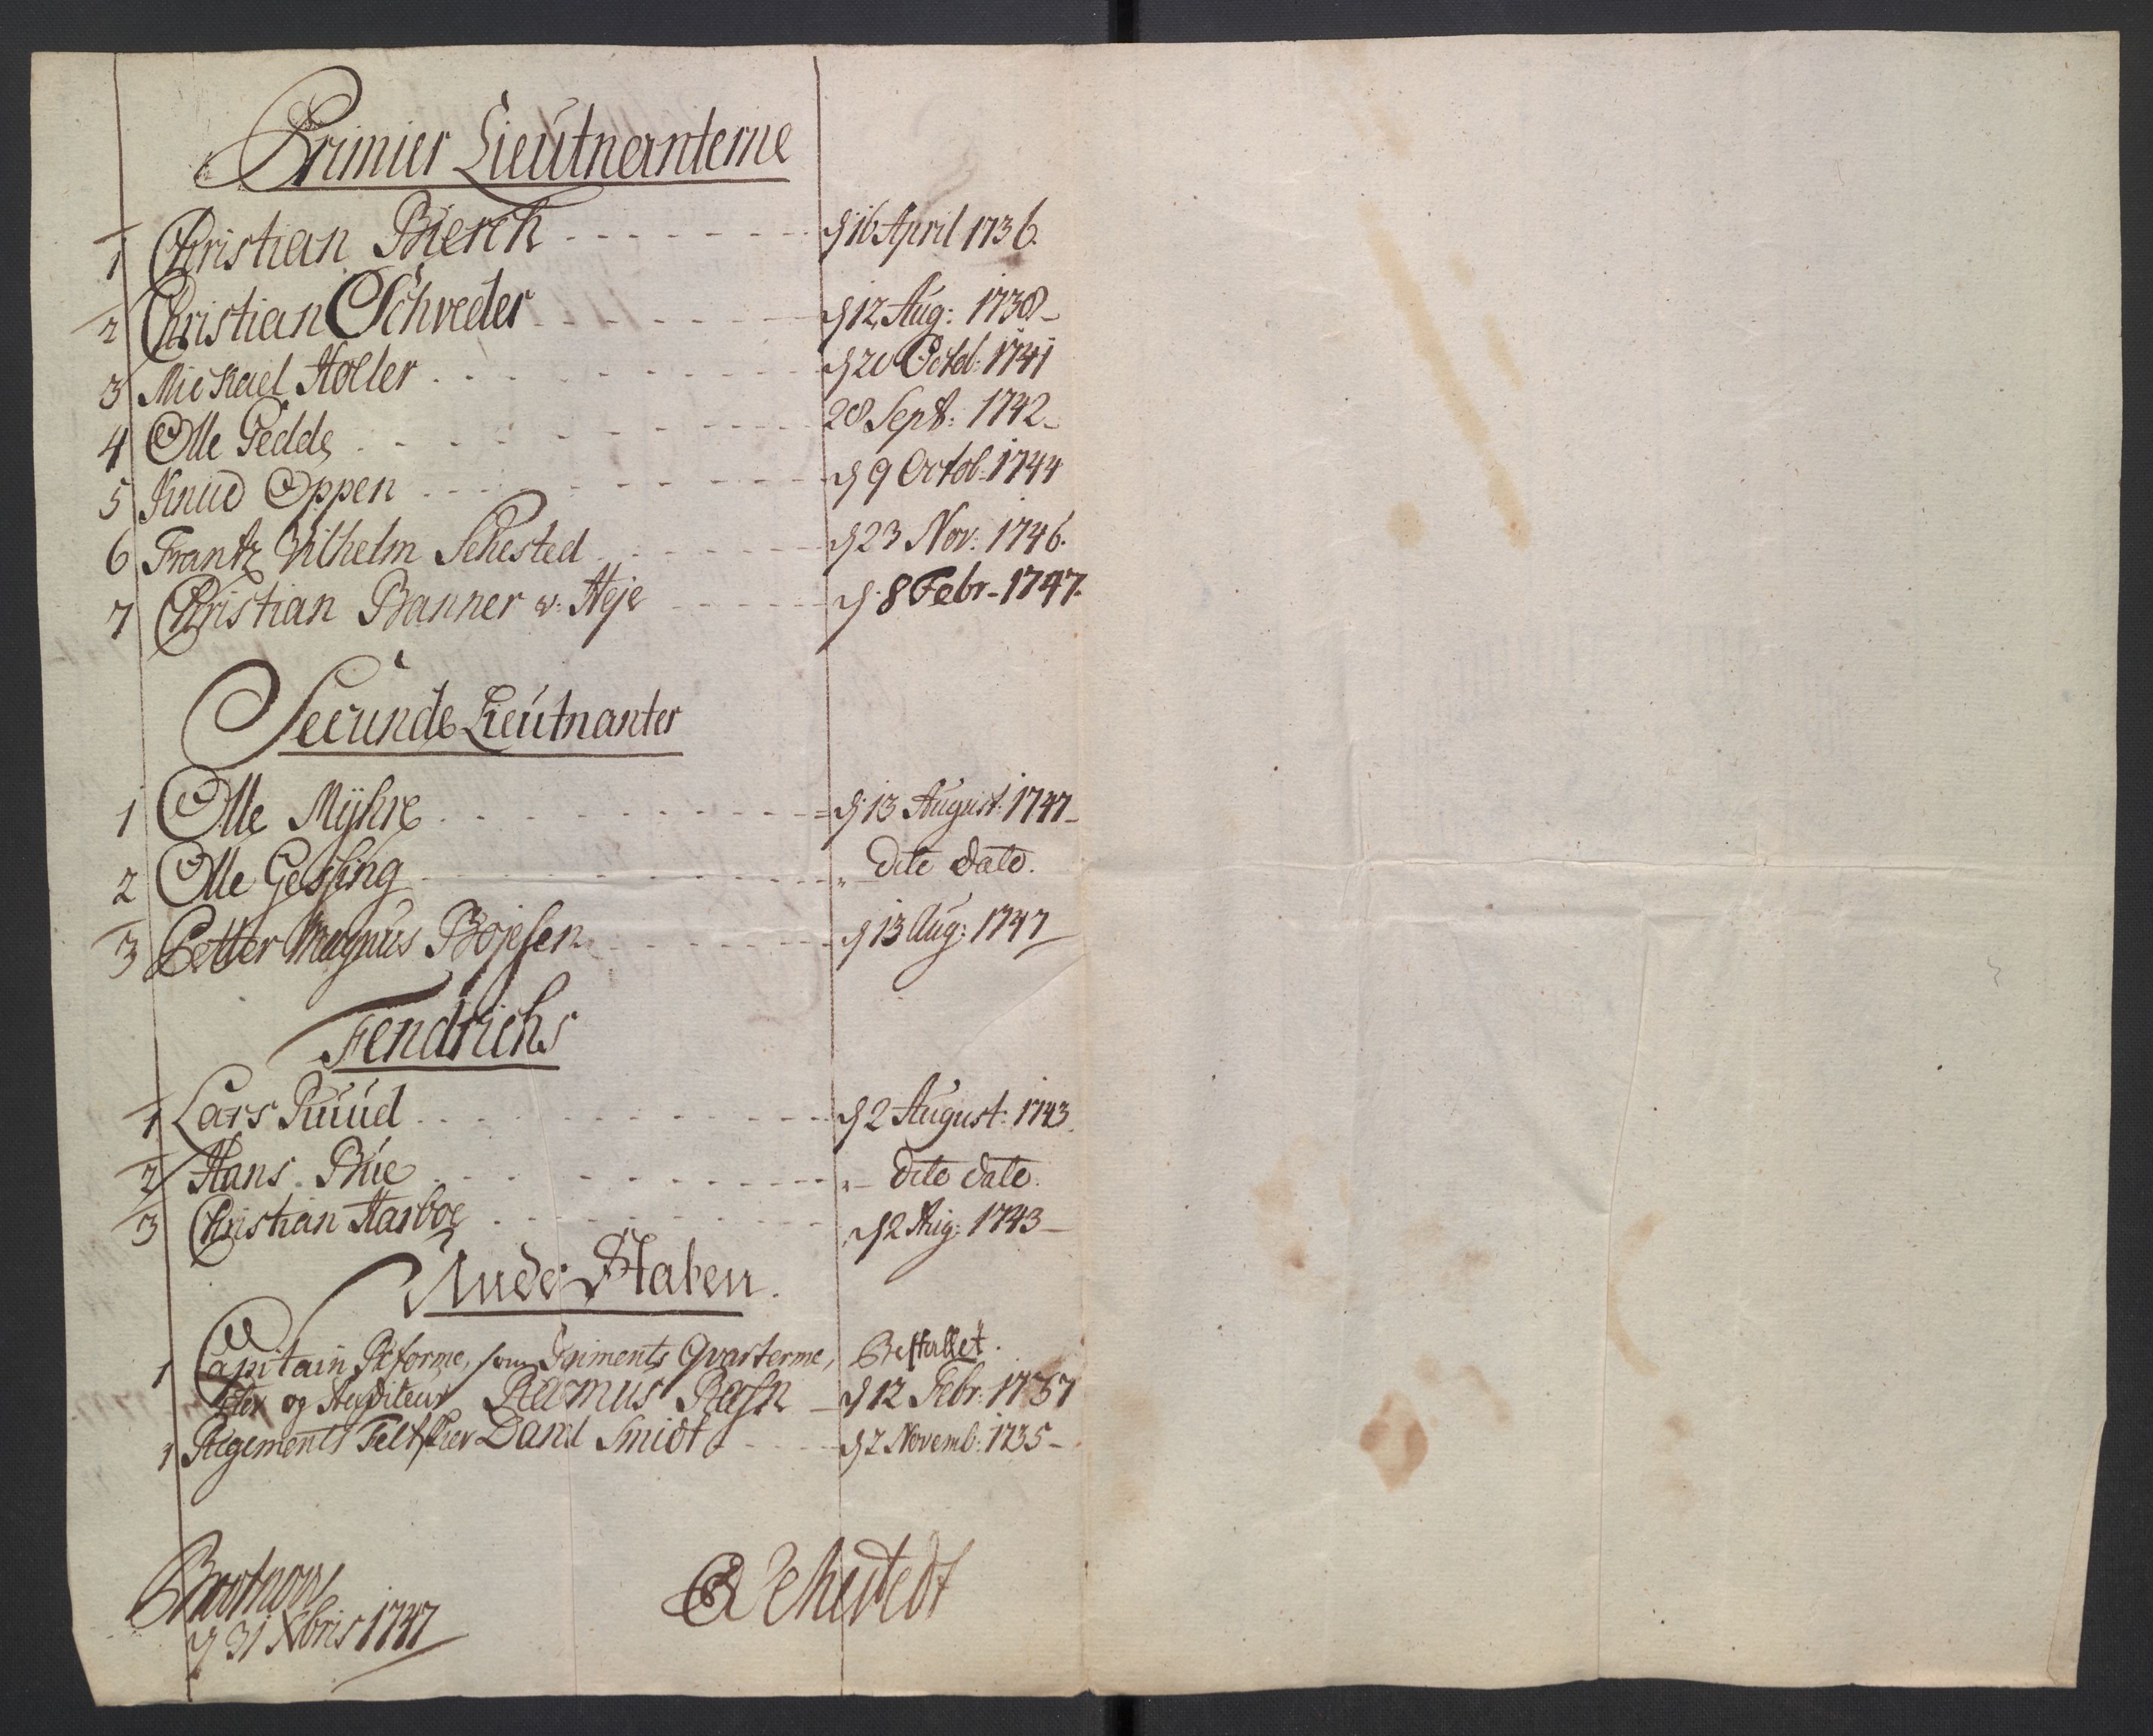 Primier Lieutnanterne
1 Christian Bierch - - - - - - - d 16 April 1736.
2 Christian Schreder - - - - - - - d 12 Aug: 1738
3 Michael Höller - - - - - - - d 20 Octob: 1741
4 Olle Gedde - - - - - - - 28 Sept: 1742
5 Knud Oppen - - - - - - - d 9 Octob: 1744
6 Frantz Vilhelm Sehested - - - - - d 23 Nov: 1746.
7 Christian Banner v: Heje - - - - - d. 8 Febr - 1747.
Secunde Lieutnanter
1 Olle Mÿhre - - - - - - - d: 13 August: 1747
2 Olle Gessing - - - - - - - Dito Dato.
3 Petter Magnus Bojesen - - - - - d 13 Aug: 1747
Fendrichs
1 Lars Ruud - - - - - - - d 2 August: 1743
2 Hans Bue - - - - - - - Dito Dato.
3 Christian Harboe - - - - - - - d 2 Aug: 1743
Under Staben.
1 Capitain Reforme, som Regiments Qvarterme, Bestallet.
ster og Auditeur Rasmus Basse d 12 Febr: 1737
1 Regements Feltskier David Smidt - - - d 2 Novemb: 1735
d 31 Xbris 1747
Sehestedt